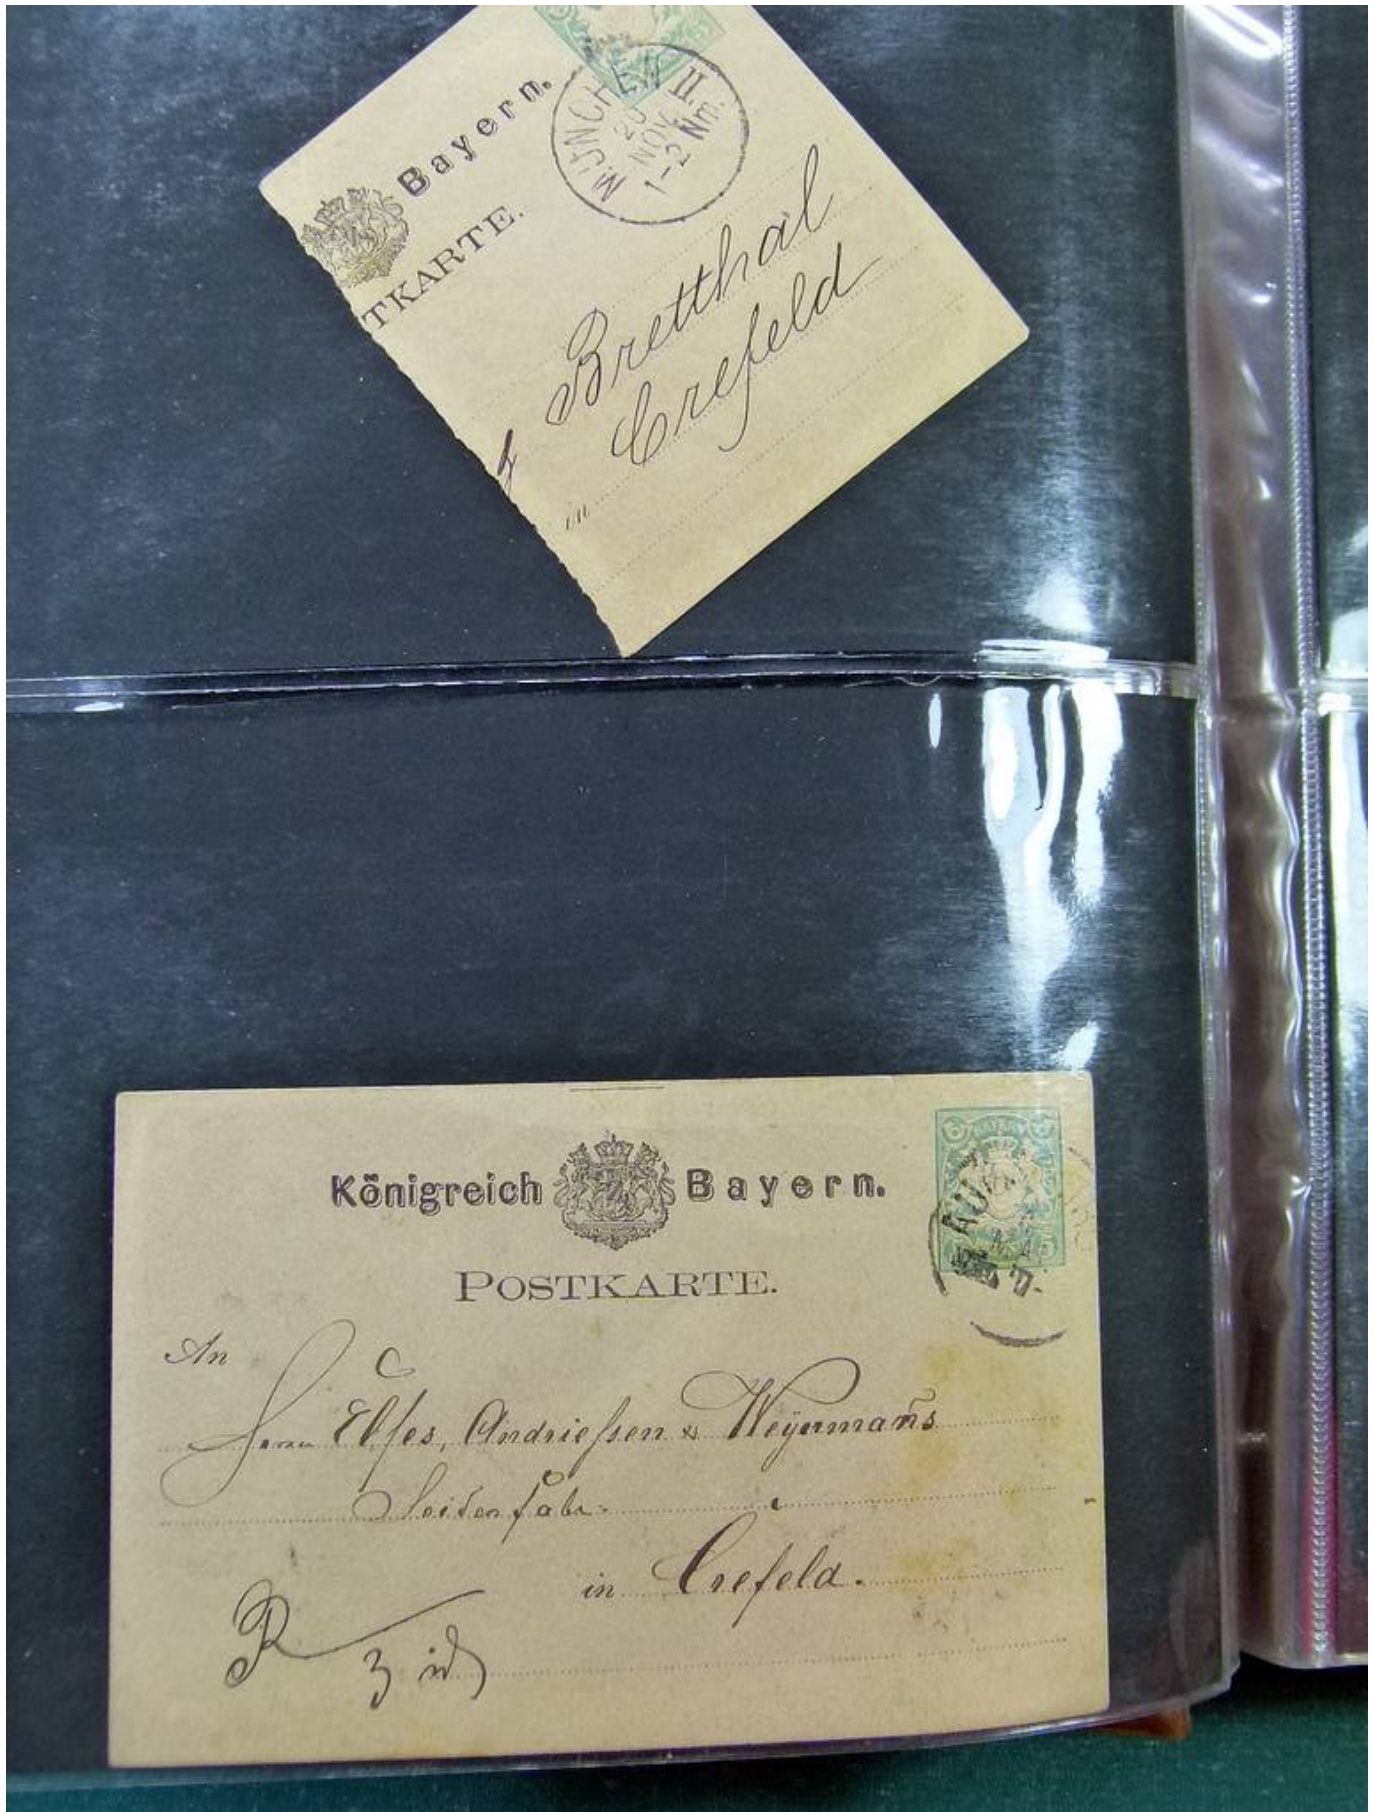 Bayern.
TKARTE.
MÜNCHEN II.
20
NOV.
1-2 Nm.
Bretthal
Crefeld
in
Königreich Bayern.
POSTKARTE.
An
Herrn Elfes, Andriessen & Weyermañs
Seidenfabr.
in Crefeld.